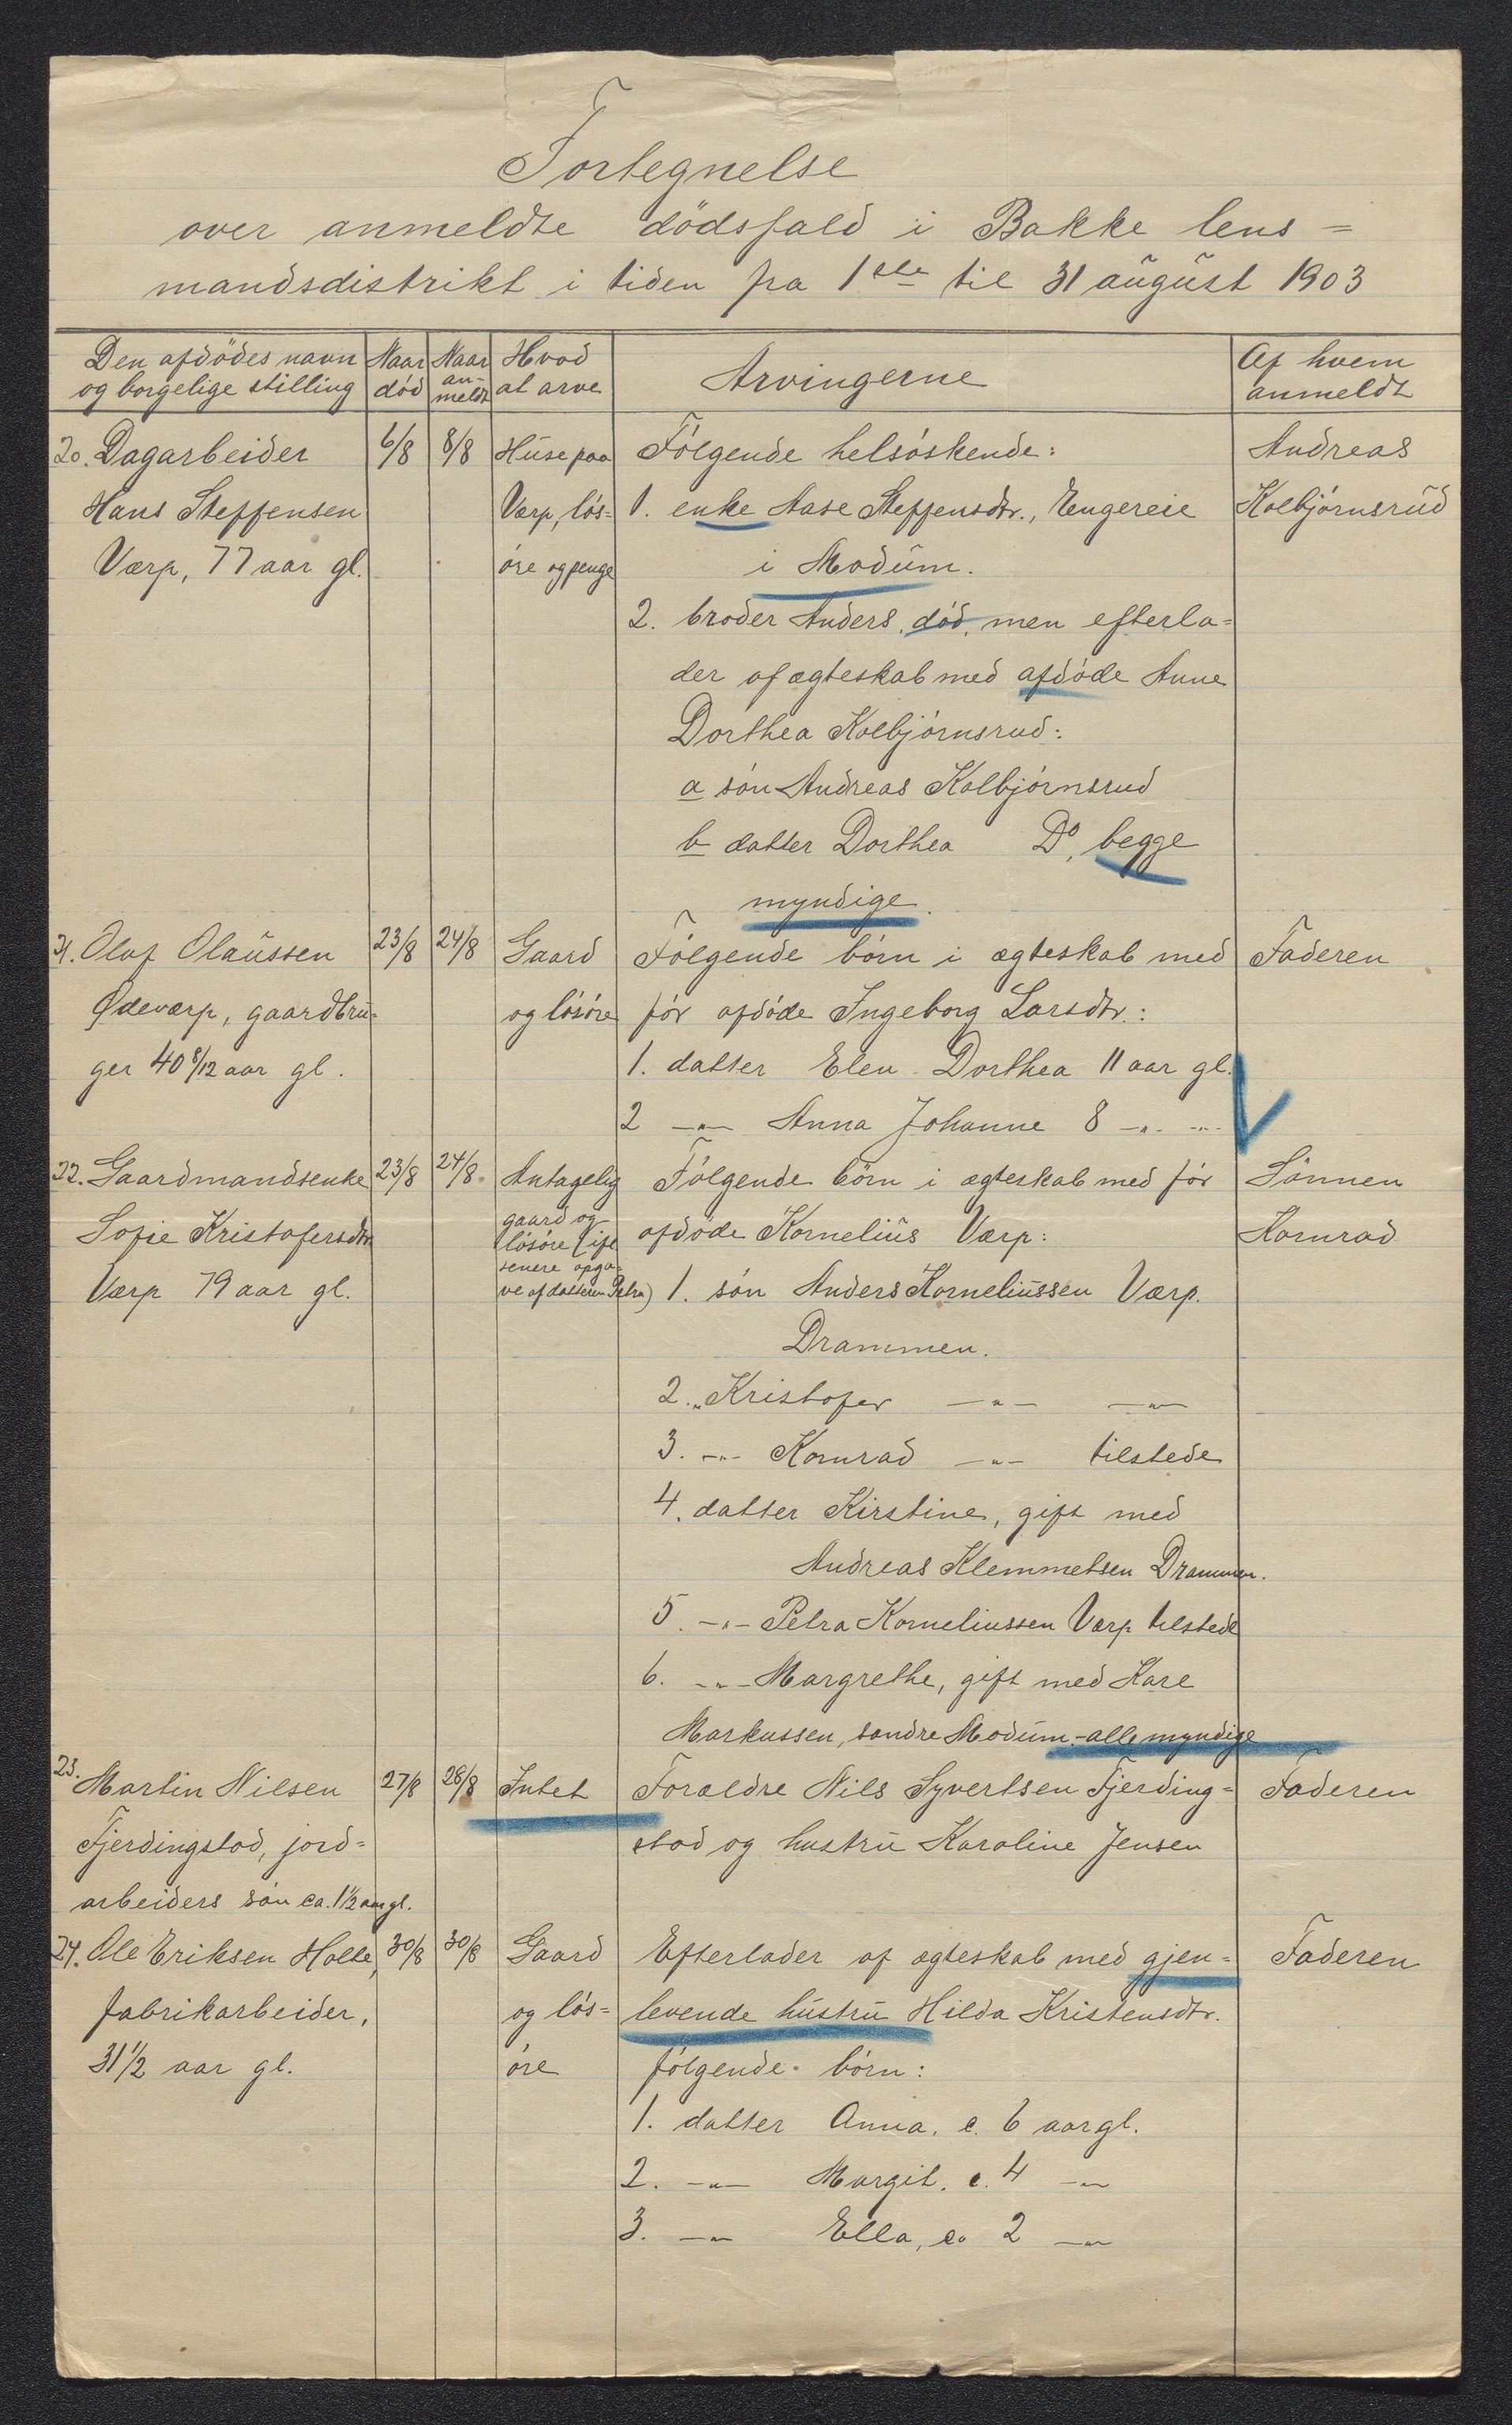 Fortegnelse
over anmeldte dödsfald i Bakke lens=
mandsdistrikt i tiden fra 1ste til 31 august 1903
Den afdödes navn
og borgelige stilling
Naar
död
Naar
an-
meldt
Hvad
at arve
Arvingerne
Af hvem
anmeldt
20. Dagarbeider
Hans Steffensen
Værp, 77 aar gl.
6/8
8/8
Huse paa
Værp, lös=
öre og penge
Følgende helsöskende:
1. enke Aase Steffensdtr., Engereie
i Modum.
2. broder Anders, död, men efterla=
der af ægteskab med afdöde Anne
Dorthea Kolbjörnsrud:
a sön Andreas Kolbjörnsrud
b datter Dorthea Do, begge
myndige.
Andreas
Kolbjörnsrud
21. Olaf Olaussen
Ødeværp, gaardbru=
ger 40 8/12 aar gl.
23/8
24/8
Gaard
og lösöre
Følgende börn i ægteskab med
för afdöde Ingeborg Larsdtr.:
1. datter Elen Dorthea 11 aar gl.
2 -"- Anna Johanne 8 -"- -"-
Faderen
22. Gaardmandsenke
Sofie Kristofersdtr
Værp 79 aar gl.
23/8
24/8.
Antagelig
gaard og
lösöre (ifl
senere opga-
ve af datteren Petra)
Følgende börn i ægteskab med för
afdöde Kornelius Værp:
1. sön Anders Korneliussen Værp.
Drammen.
2. " Kristofer -"- -"-
3. -"- Konrad -"- tilstede
4. datter Kirstine, gift med
Andreas Klemmetsen Drammen.
5. -"- Petra Korneliussen Værp tilstede
6. -"- Margrethe, gift med Kare
Markussen, søndre Modum.-alle myndige
Sönnen
Konrad
23.
Martin Nilsen
Fjerdingstad, jord=
arbeiders sön ca. 1 1/2 aar gl.
27/8
28/8
Intet
Forældre Nils Syvertsen Fjerding=
stad og hustru Karoline Jensen
Faderen
24. Ole Eriksen Holte,
fabrikarbeider,
31 1/2 aar gl.
30/8
30/8
Gaard
og lös=
öre
Efterlader af ægteskab med gjen=
levende hustru Hilda Kristensdtr.
fölgende börn:
1. datter Anna, c. 6 aar gl.
2. -"- Margit, c. 4 -"-
3. -"- Ella, c. 2 -"-
Faderen